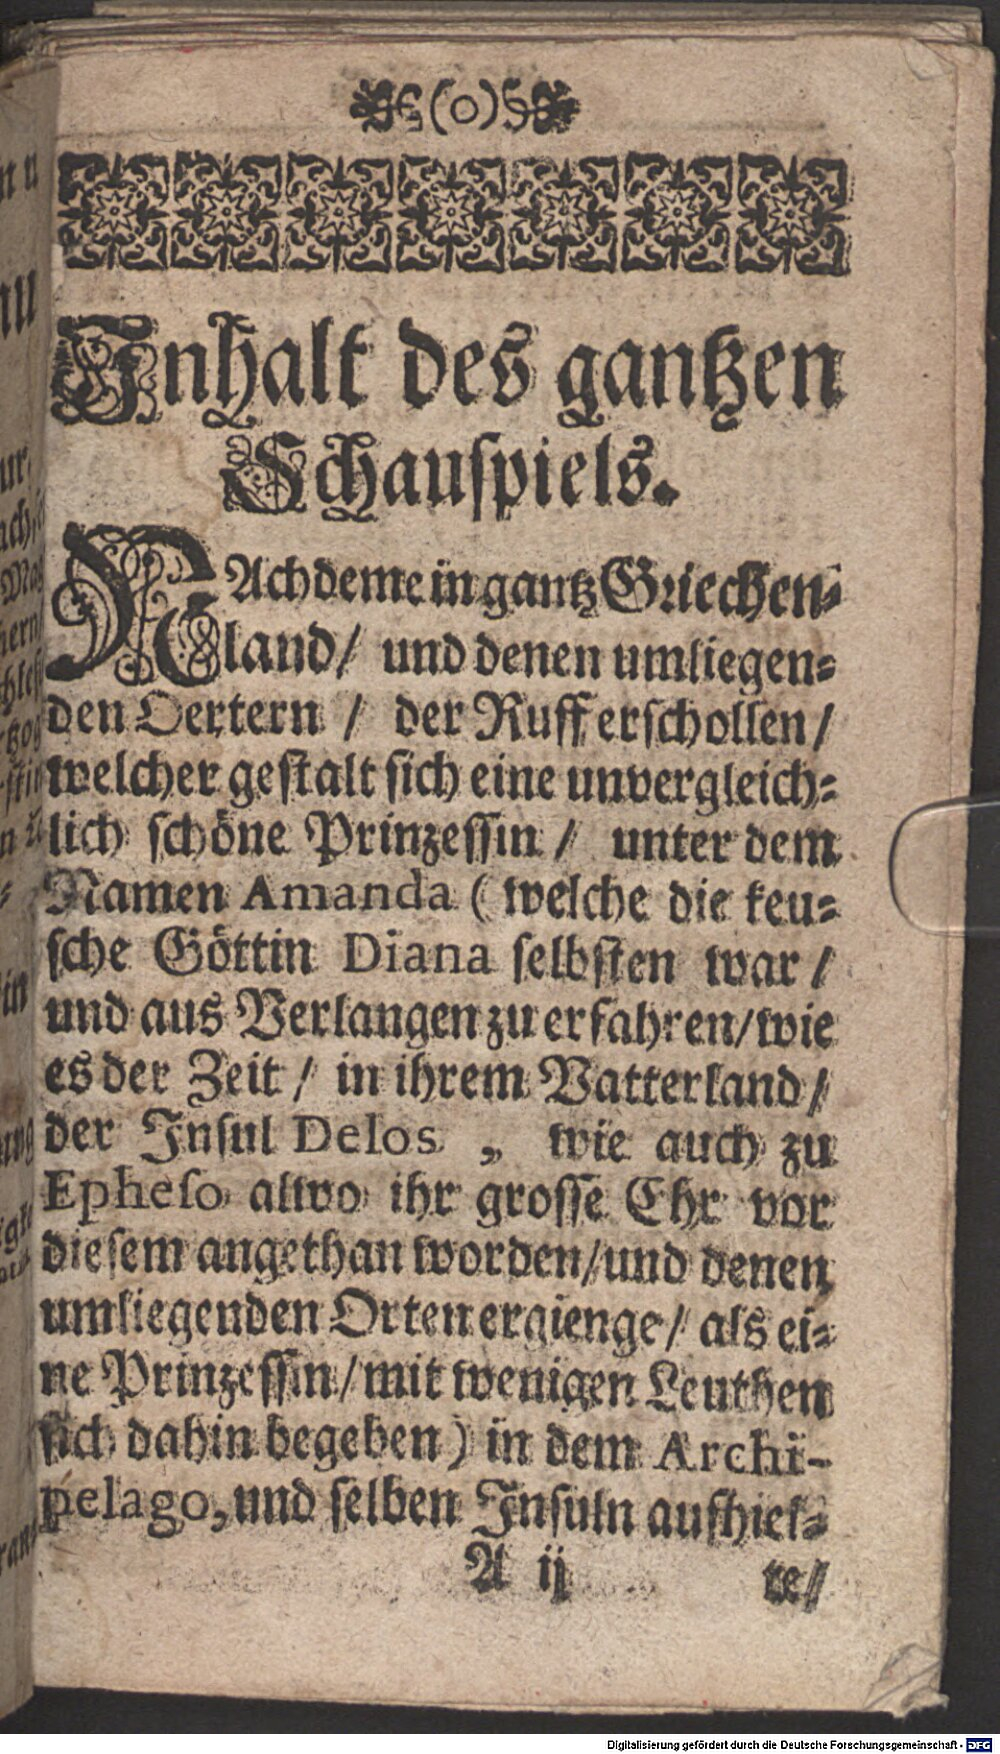 (o)
Inhalt des gantzen
Schauspiels.
NAchdeme in gantz Griechen-
land/ und denen umliegen-
den Oertern / der Ruff erschollen/
welcher gestalt sich eine unvergleich-
lich schöne Prinzessin / unter dem
Namen Amanda (welche die keu-
sche Göttin Diana selbsten war/
und aus Verlangen zu erfahren/wie
es der Zeit/ in ihrem Vatterland/
der Insul Delos , wie auch zu
Epheso allwo ihr grosse Ehr vor
diesem angethan worden/und denen
umliegenden Orten ergienge/ als ei-
ne Prinzessin/mit wenigen Leuthen
sich dahin begeben) in dem Archi-
pelago, und selben Insuln aufhiel-
A ij te/
Digitalisierung gefördert durch die Deutsche Forschungsgemeinschaft - DFG